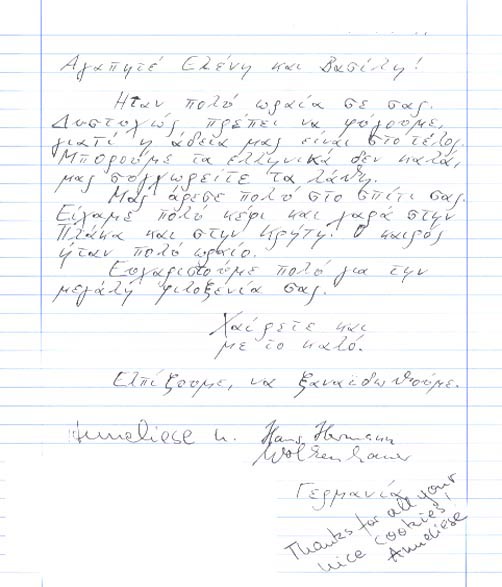 Αγαπητέ Ελένη και Βασίλη!
Ηταν πολό ωραία σε σας.
Δυστοχώς πρέπει να φόγουμε,
γιατί η άδεια μας είναι στο τέλος.
Μπορούμε τα ελληνικά δεν καλά,
μας σογχωρείτε τα λάθη.
Μας άρεσε πολό στο σπίτι σας.
Είχαμε πολό κέφι και χαρά στην
Πλάκα και στην Κρήτη. Ο καιρός
ήταν πολό ωραίο.
Εοχαριστούμε πολό για την
μεγάλη φιλοξενία σας.
Χαίρετε και
με το καλό.
Ελπίζουμε, να ξαναϊδωθούμε.
Anneliese u. Hans Hermann
Wolkenhauer
Γερμανία
Thanks for all your
nice cookies!
Anneliese